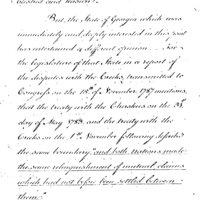 But, the State of Georgia which was
immediately and deeply interested in this road
has entertained a different opinion. For
the legislature of that State in a report of
the disputes with the Creeks, transmitted to
Congress on the 10th of November 1787 mentions,
that the treaty with the Cherokees on the 31st
day of May 1783 and the treaty with the
Creeks on the 1st November following defined
the same boundary "and both nations made
the same relinquishment of mutual claims
which had not before been settled between
them"